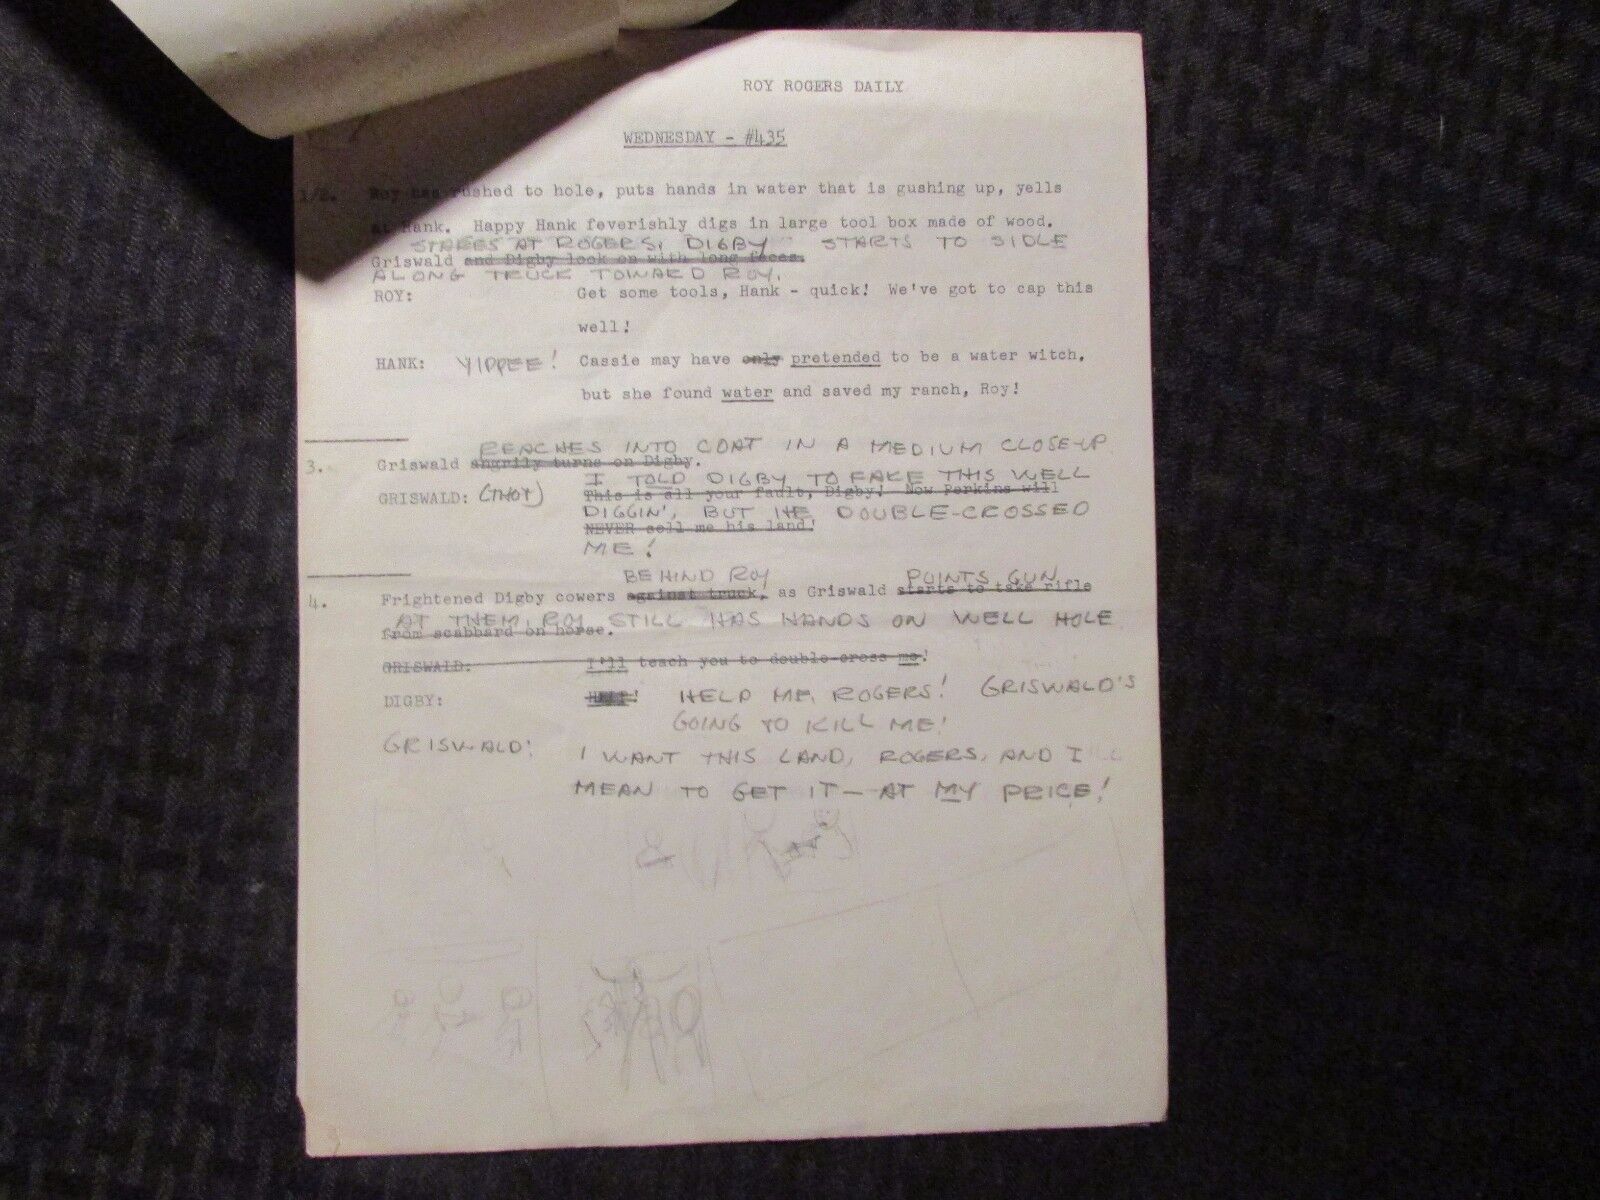 ROY ROGERS DAILY
WEDNESDAY - #435
1/2. Roy has rushed to hole, puts hands in water that is gushing up, yells
at Hank. Happy Hank feverishly digs in large tool box made of wood.
STARES AT ROGERS, DIGBY STARTS TO SIDLE
Griswald and Digby look on with long faces.
ALONG TRUCK TOWARD ROY.
ROY: Get some tools, Hank - quick! We've got to cap this
well!
HANK: YIPPEE! Cassie may have only pretended to be a water witch.
but she found water and saved my ranch, Roy!
REACHES INTO COAT IN A MEDIUM CLOSE-UP
3. Griswald angrily turns on Digby.
I TOLD DIGBY TO FAKE THIS WELL
GRISWALD: (THOT) This is all your fault, Digby! Now Perkins will
DIGGIN', BUT HE DOUBLE-CROSSED
NEVER sell me his land!
ME!
BEHIND ROY POINTS GUN
4. Frightened Digby cowers against truck, as Griswald starts to take rifle
AT THEM, ROY STILL HAS HANDS ON WELL HOLE
from scabbard on horse.
GRISWALD: I'll teach you to double-cross me!
DIGBY: HELP ME, ROGERS! GRISWALD'S
GOING TO KILL ME!
GRISWALD: I WANT THIS LAND, ROGERS, AND I
MEAN TO GET IT — AT MY PRICE!